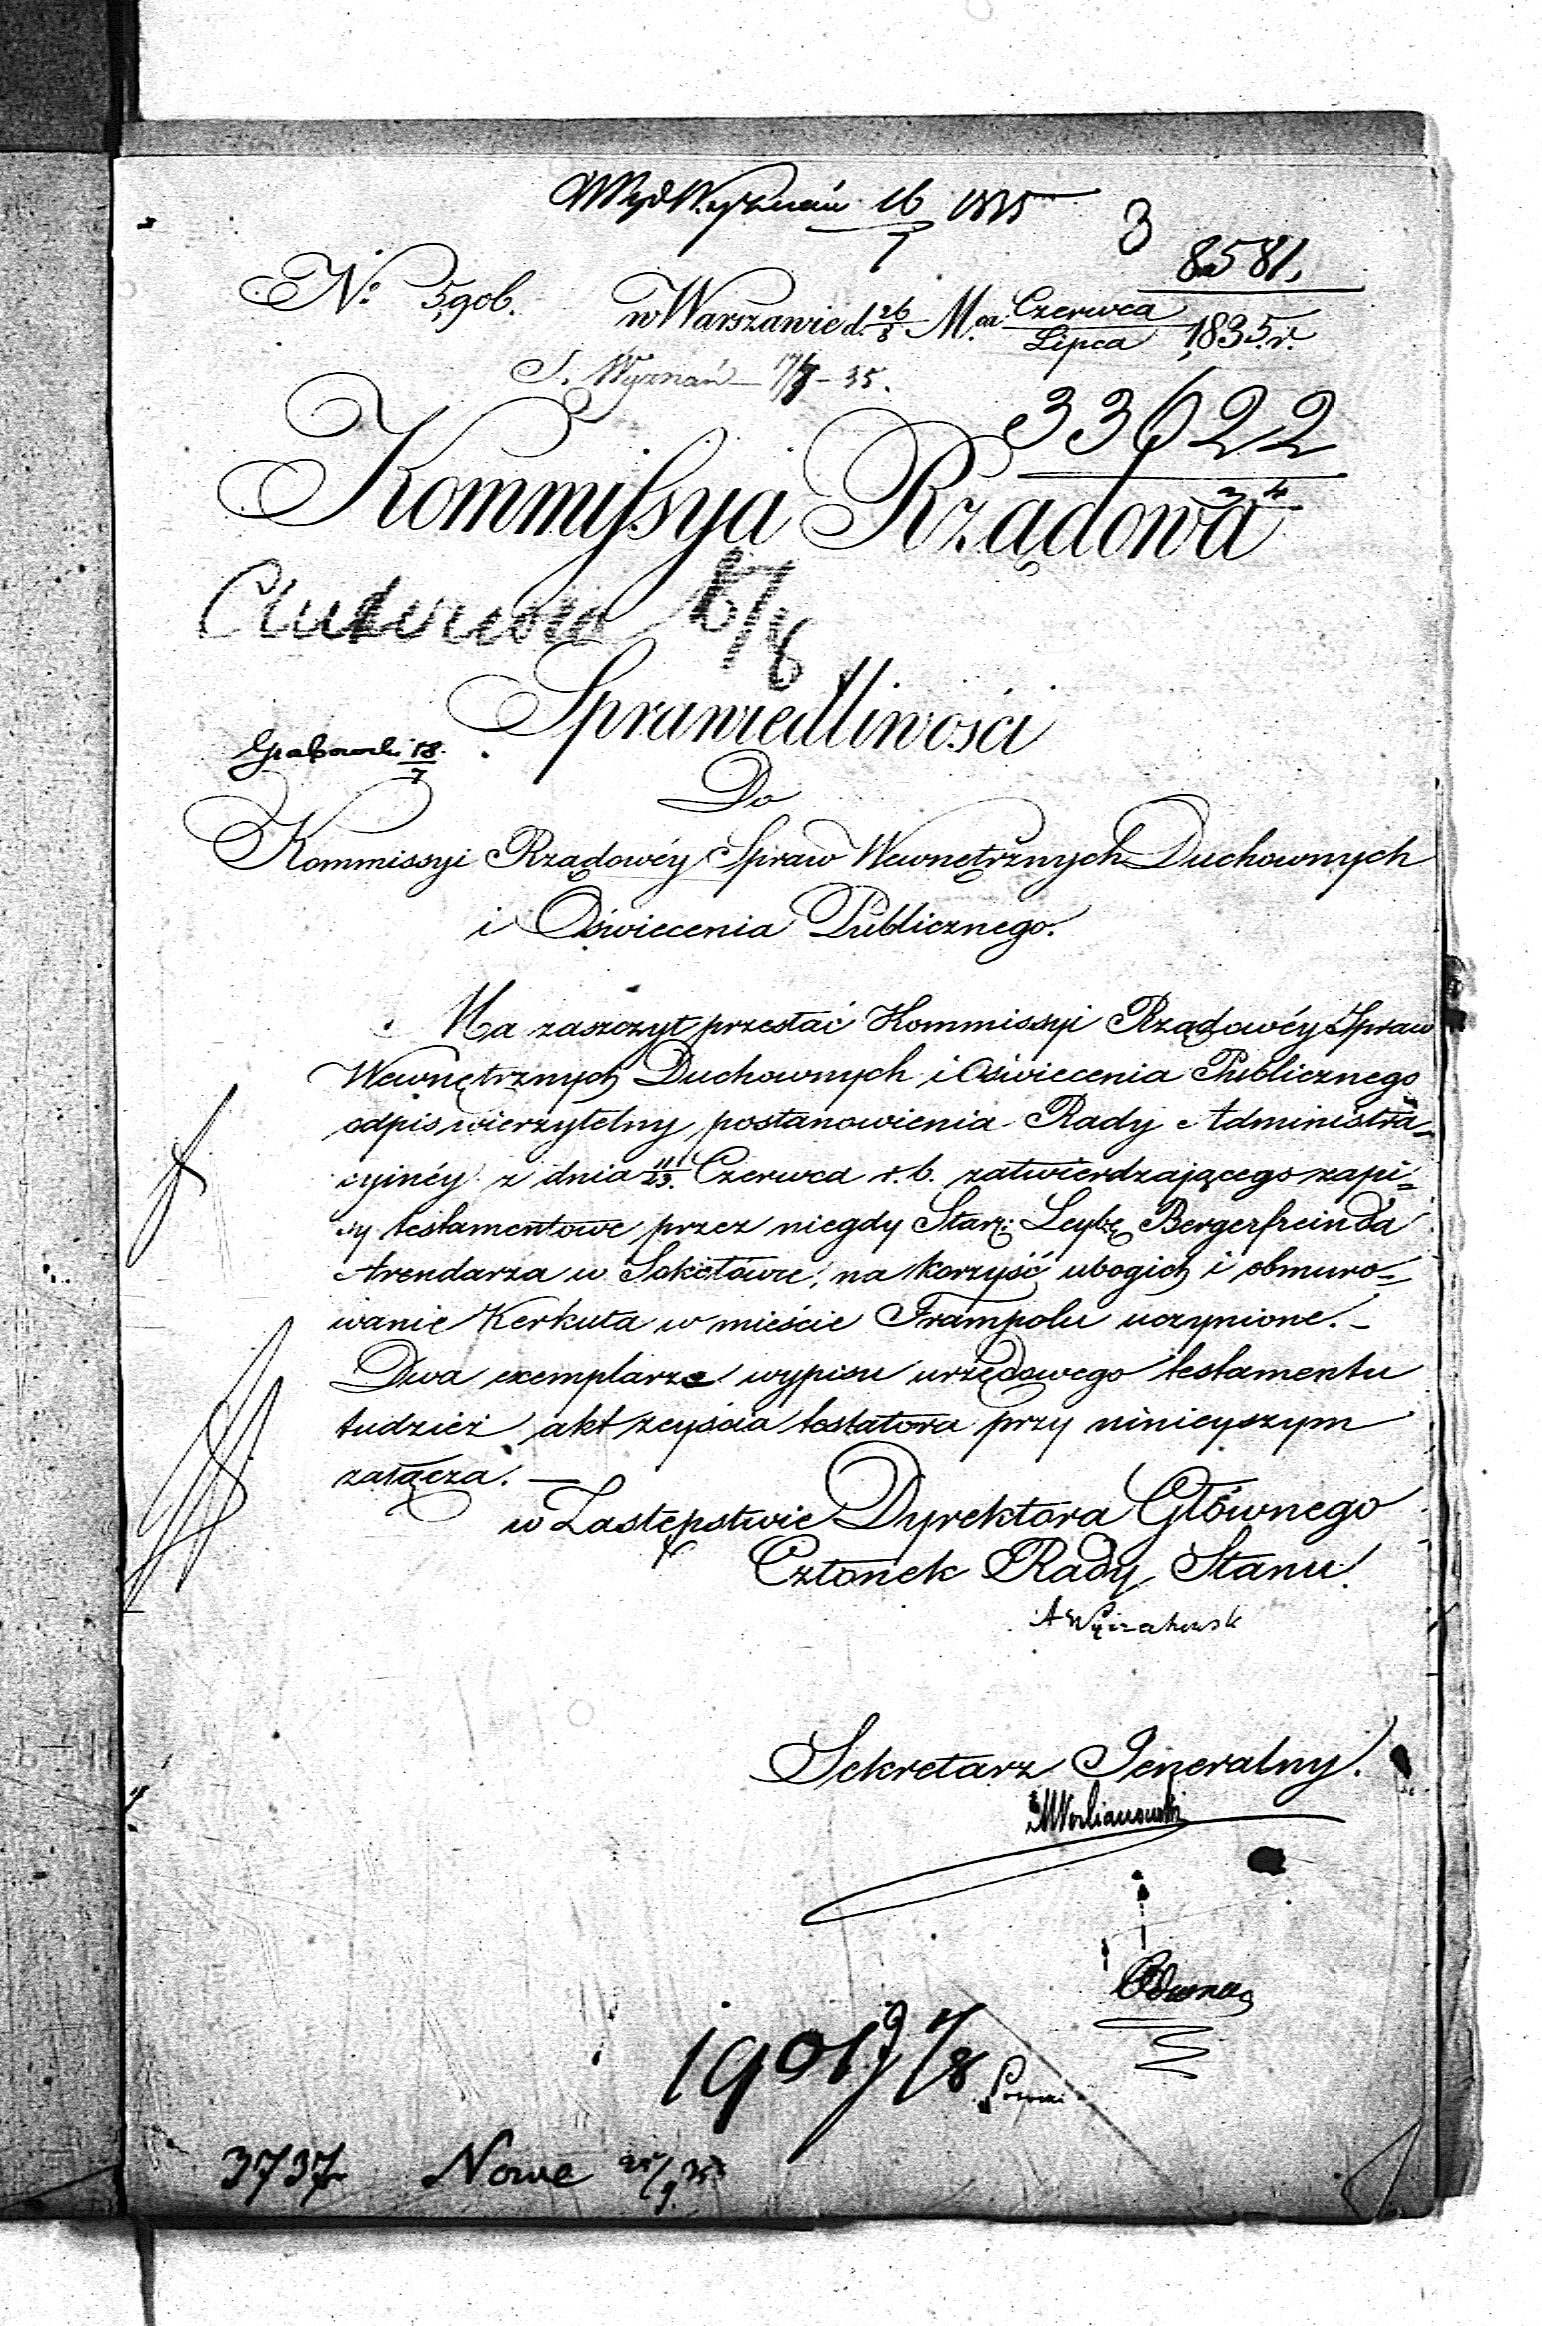 16/7 1835
3
8581.
No 5906. w Warszawie d. 26/8 M.ca Czerwca/Lipca 1835. r.
S. Wyznań 17/7 - 35.
33622
Kommissya Rządowa
Sprawiedliwości
Grabowski 18/7
Do
Kommissyi Rządowéy Spraw Wewnętrznych Duchownych
i Oświecenia Publicznego.
Ma zaszczyt przesłać Kommissyi Rządowéy Spraw
Wewnętrznych Duchownych i Oświecenia Publicznego
odpis wierzytelny postanowienia Rady Administra=
cyinéy z dnia 11/23. Czerwca r. b. zatwierdzającego zapi=
sy testamentowe przez niegdy Star: Leybę Bergerfreinda
Arendarza w Sokołówie, na korzyść ubogich i obmuro=
wanie Kerkuta w mieście Frampolu uczynione. -
Dwa exemplarze wypisu urzędowego testamentu
tudzież akt zeyścia testatora przy ninieyszym
załącza. —
w Zastępstwie Dyrektora Głównego
Członek Rady Stanu.
Sekretarz Jeneralny.
3737 Nowe